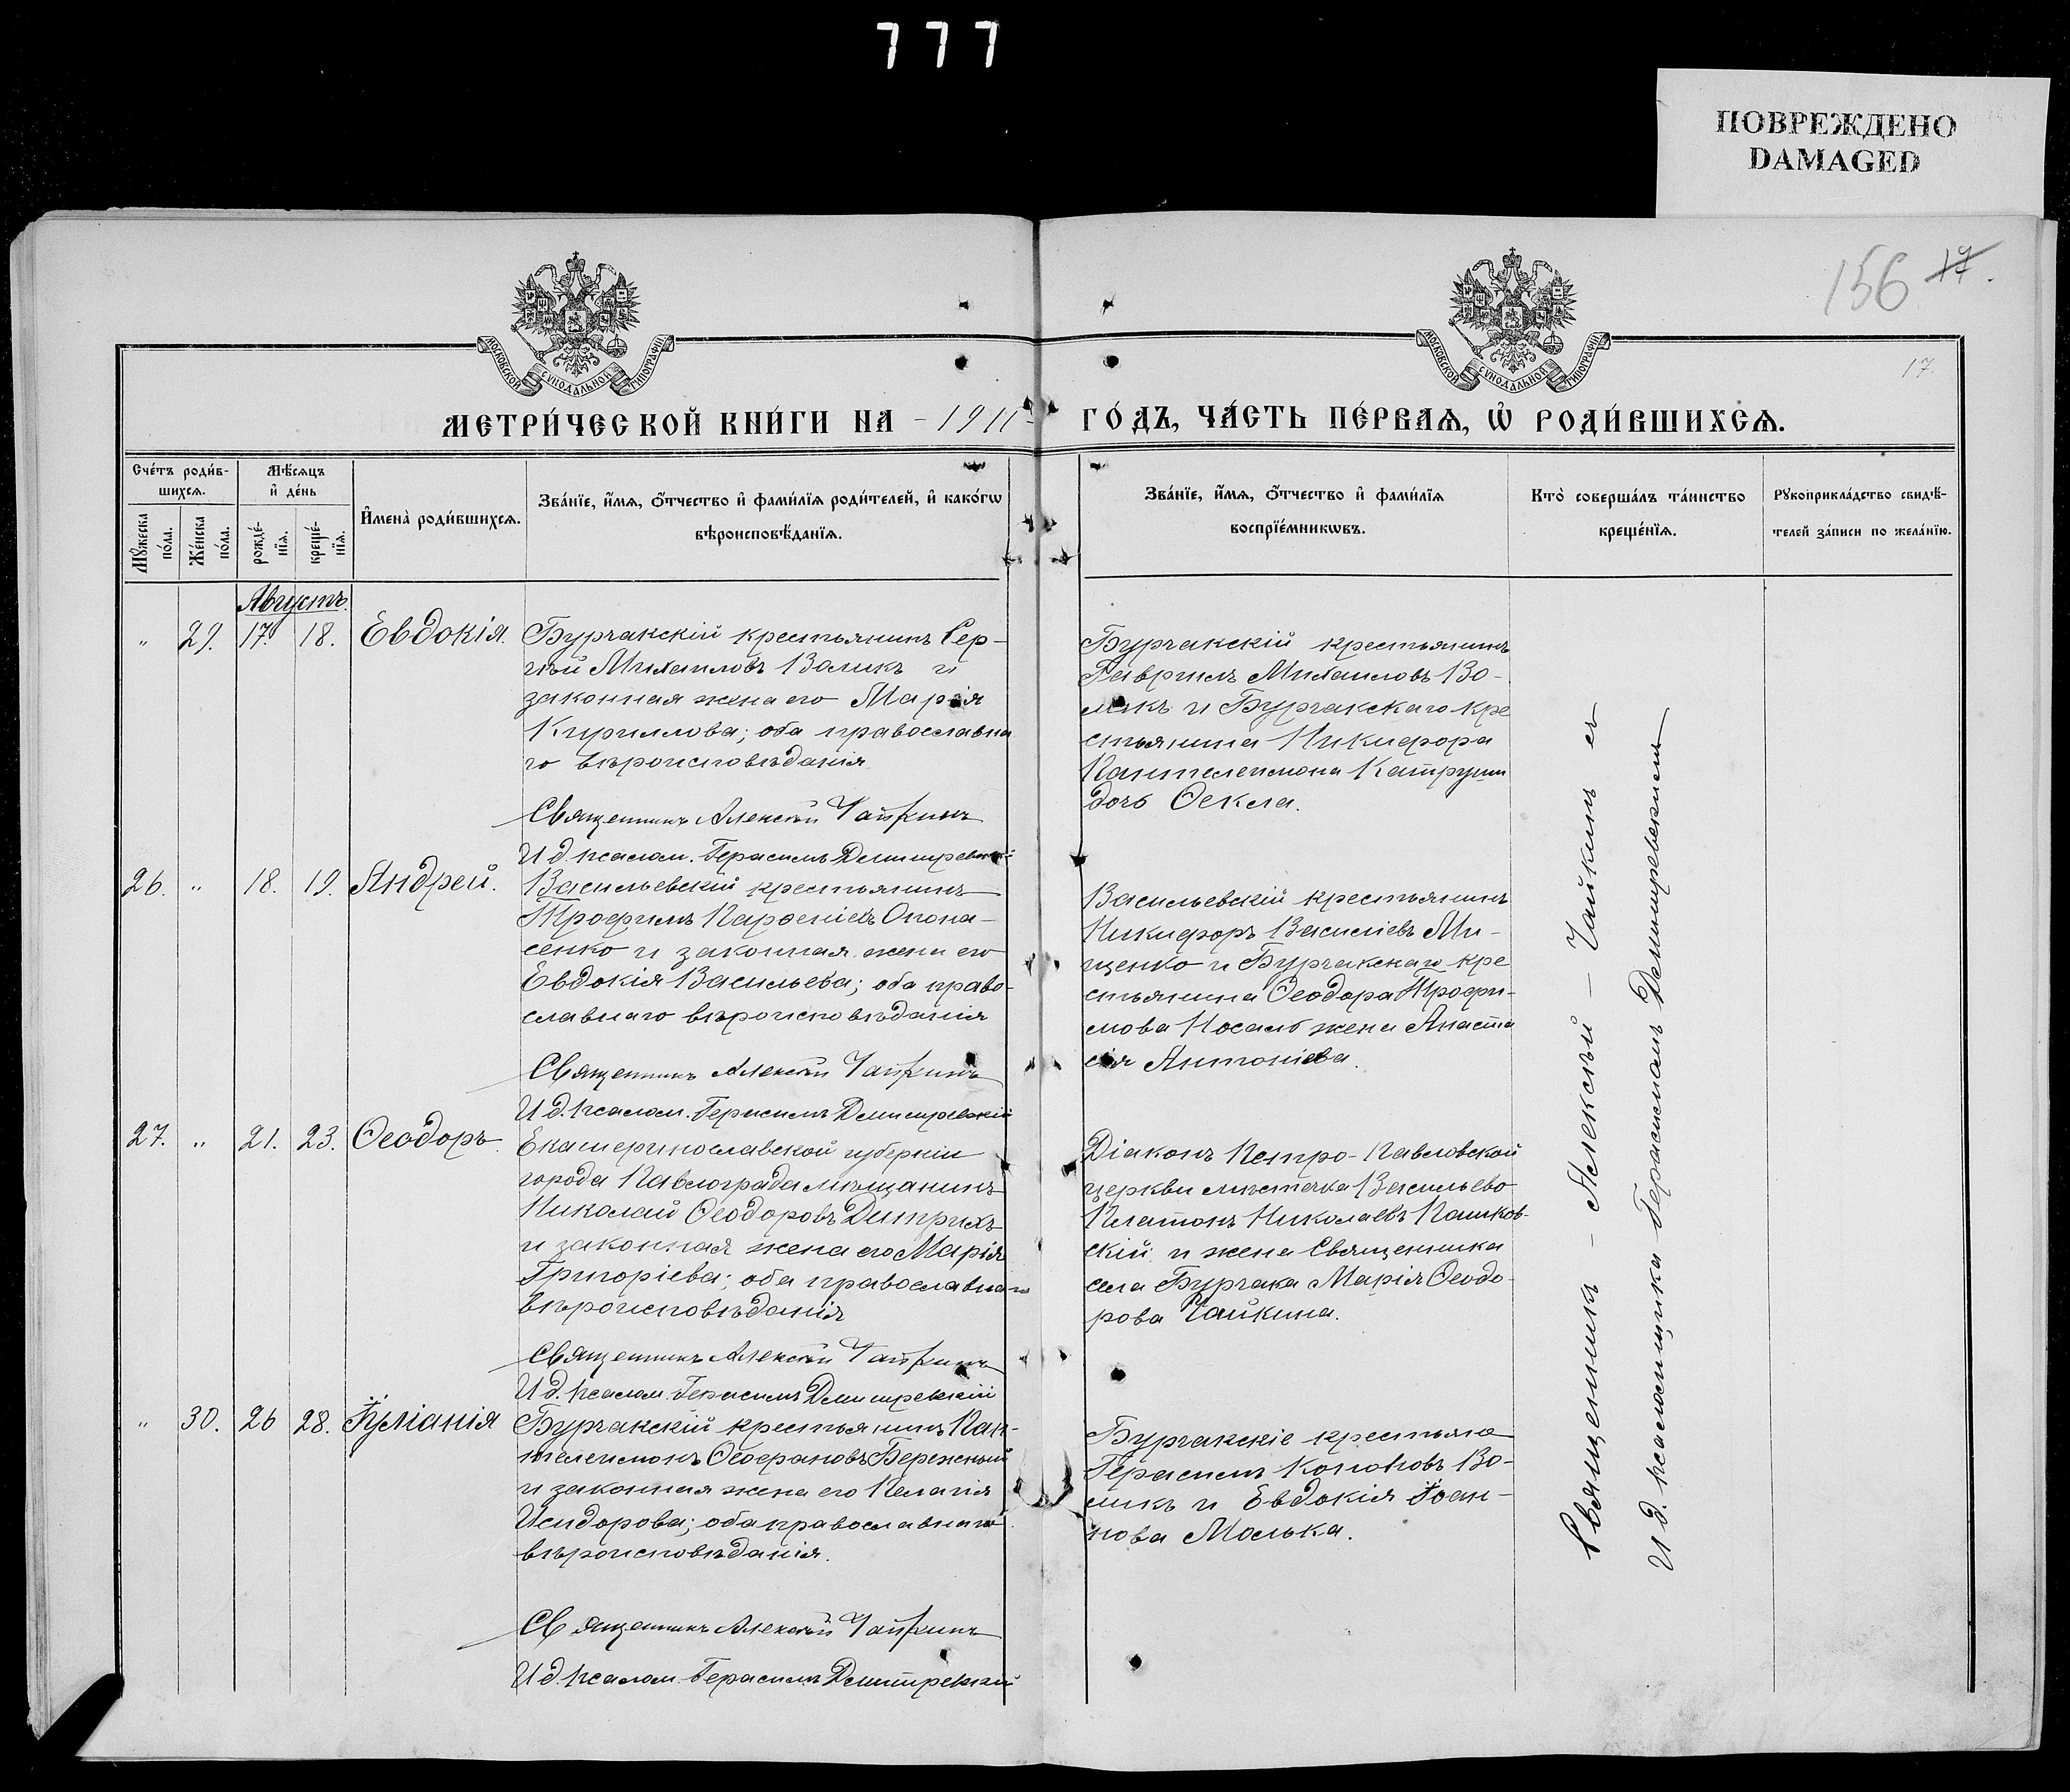 777
ПОВРЕЖДЕНО
DAMAGED
156 17.
17.
МОСКОВСКОЙ СѴНОДАЛЬНОЙ ТИПОГРАФІИ
МОСКОВСКОЙ СѴНОДАЛЬНОЙ ТИПОГРАФІИ
МЕТРИ́ЧЕСКОЙ КНИ́ГИ НА - 1911 - ГО́ДЪ, ЧА́СТЬ ПЕ́РВАѦ, Ѽ РОДИ́ВШИХСѦ.
Сче́тъ роди́в-
шихсѧ.
Мѣ́сѧцъ
и҆ де́нь
Мꙋ́жеска
по́ла.
Же́нска
по́ла.
рожде́-
нїѧ.
креще́-
нїѧ.
И҆мена̀ роди́вшихсѧ.
Зва́нїе, и҆́мѧ, ѻ҆́тчество и҆ фами́лїѧ роди́телей, и҆ како́гѡ
вѣроисповѣ́данїѧ.
Зва́нїе, и҆́мѧ, ѻ҆́тчество и҆ фами́лїѧ
воспрїе́мникѡвъ.
Кто̀ соверша́лъ та́инство
креще́нїѧ.
Рꙋкоприкла́дство свидѣ́-
телей за́писи по жела́нїю.
Августъ.
" 29. 17. 18. Евдокія.
Бурчакскій крестьянинъ Сер-
гѣй Михаиловъ Воликъ и
законная жена его Марія
Кириллова; оба православна
го вѣроисповѣданія
Священникъ Алексѣй Чайкинъ
И д. псалом. Герасимъ Дмитревскій
Бурчакскій крестьянинъ
Гавриилъ Михаиловъ Во-
ликъ и Бурчакскаго кре
стьянина Никифора
Пантелеимона Катруши
дочь Ѳекла.
26. " 18. 19. Андрей.
Васильевскій крестьянинъ
Трофимъ Парѳеніевъ Опона-
сенко и законная жена его
Евдокія Васильева; оба право-
славнаго вѣроисповѣданія
Священникъ Алексѣй Чайкинъ
И д. псалом. Герасимъ Дмитревскій
Васильевскій крестьянинъ
Никифоръ Василіевъ Ми-
щенко и Бурчакскаго кре
стьянина Ѳеодора Трофи-
мова Носаль жена Анаста
сія Антоніева.
27. " 21. 23. Ѳеодоръ.
Екатеринославской губерніи
города Павлограда мѣщанинъ
Николай Ѳеодоровъ Дитрихъ
и законная жена его Марія
Григоріева; оба православнаго
вѣроисповѣданія
Священникъ Алексѣй Чайкинъ
И д. псалом. Герасимъ Дмитревскій
Діаконъ Петро-Павловской
церкви мѣстечка Васильево
Платонъ Николаевъ Пашков-
скій и жена Священника
села Бурчака Марія Ѳеодо-
рова Чайкина.
" 30. 26 28. Іуліанія
Бурчакскій крестьянинъ Пан-
телеимонъ Ѳеофановъ Бережный
и законная жена его Пелагія
Исидорова; оба православнаго
вѣроисповѣданія.
Священникъ Алексѣй Чайкинъ
И д. псалом. Герасимъ Дмитревскій
Бурчакскіе крестьяне
Герасимъ Кононовъ Во-
ликъ и Евдокія Іоан-
нова Молька.
Священникъ - Алексѣй - Чайкинъ съ
И д. псаломщика Герасимомъ Дмитревскимъ